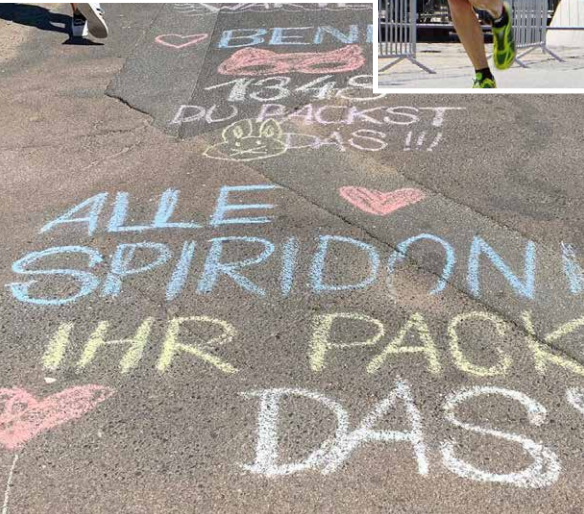 BEN
1348
DU PACKST
DAS !!!
ALLE
SPIRIDON
IHR PACK
DAS